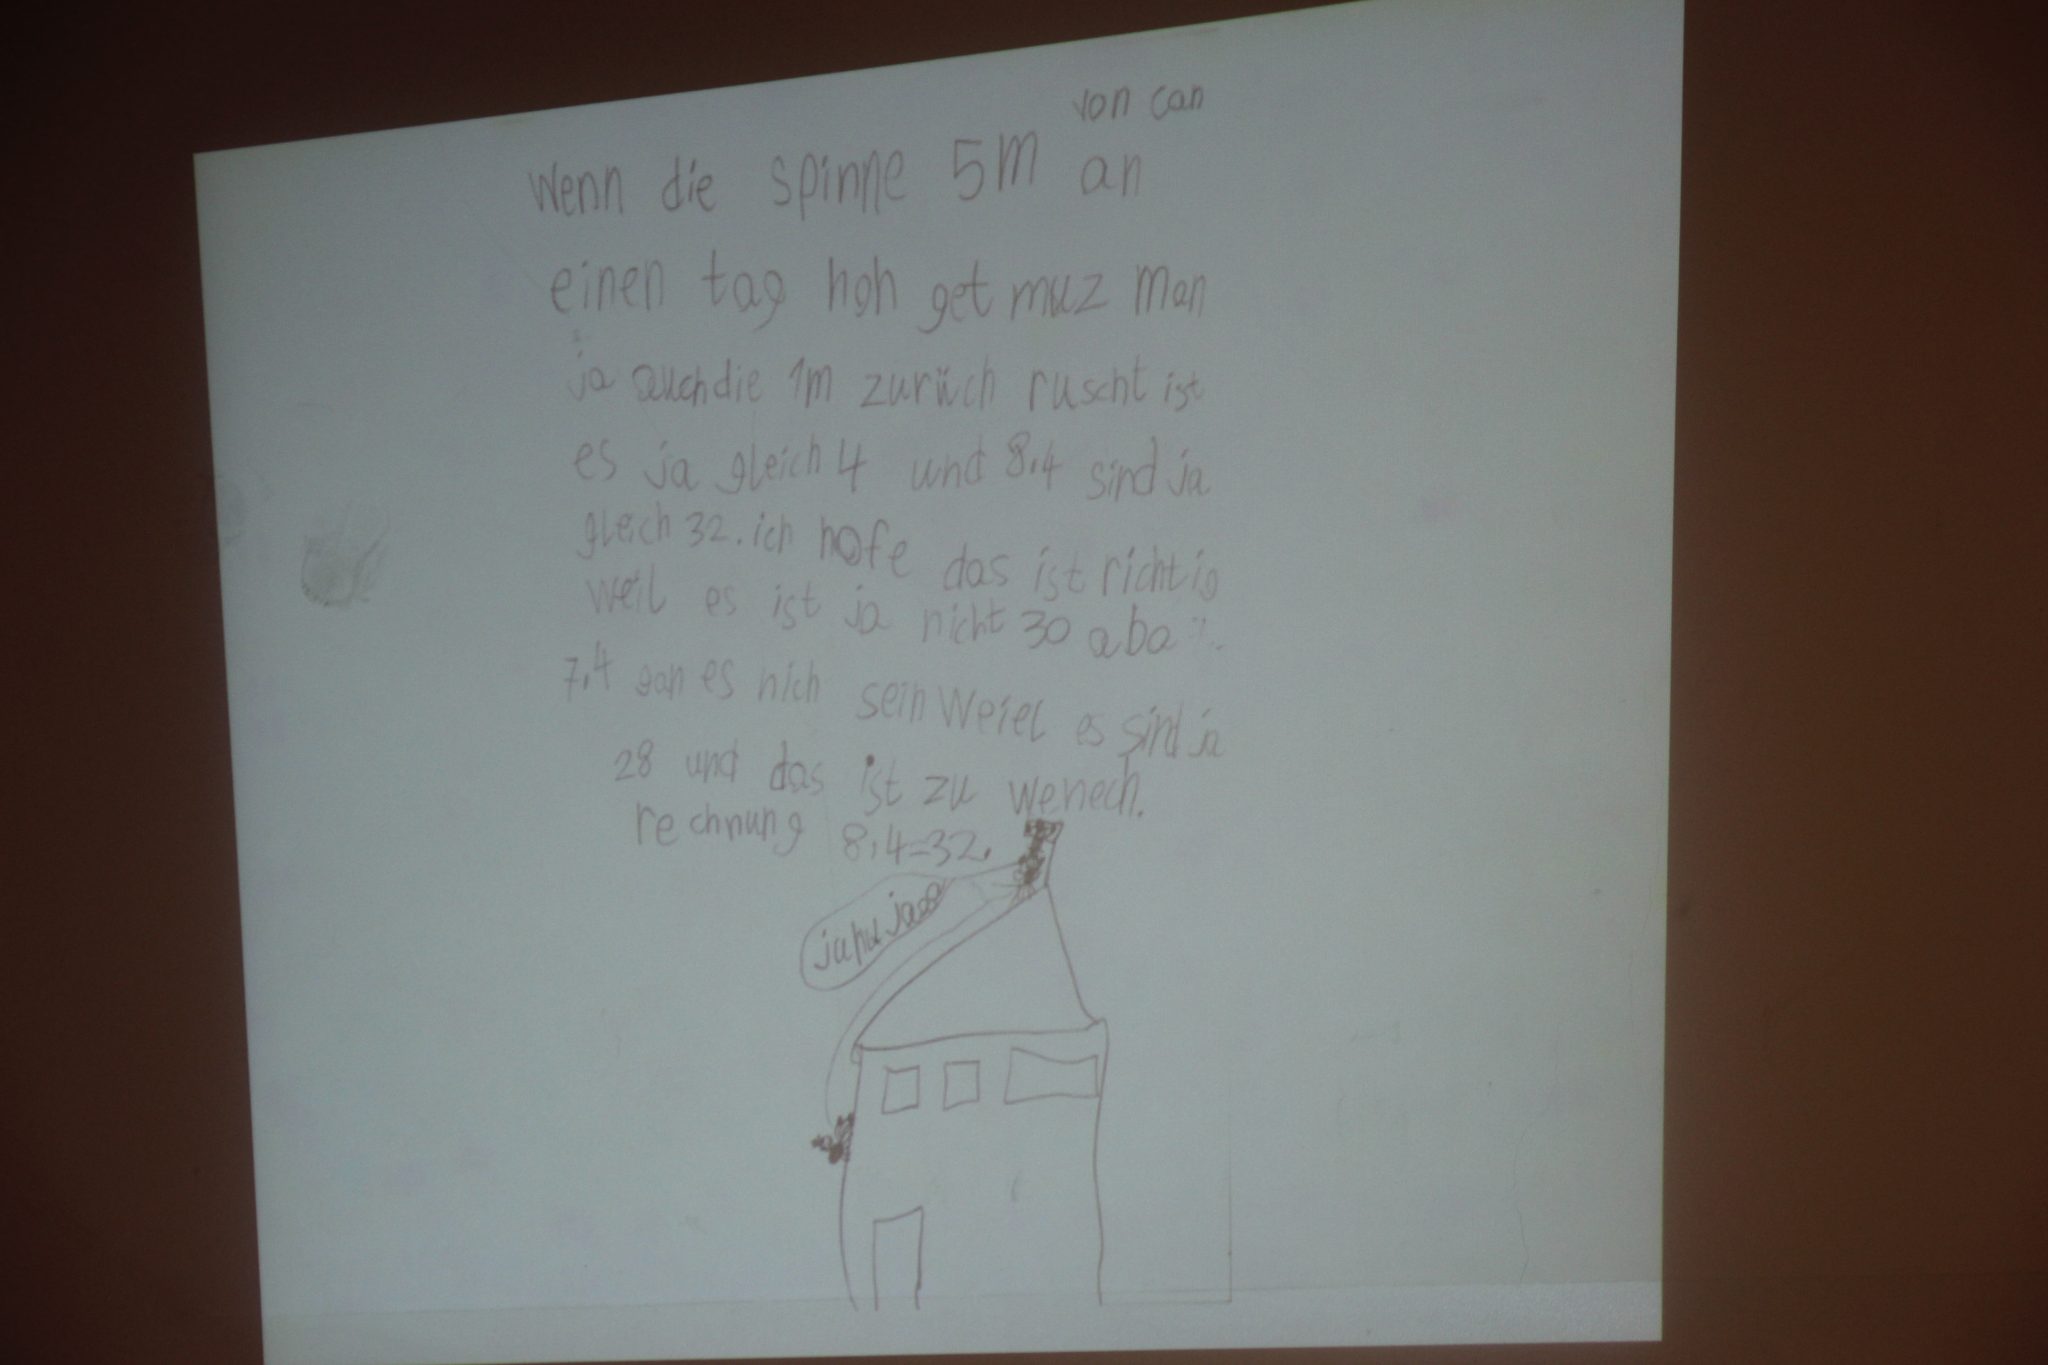 von can
wenn die spinne 5m an
einen tag hoh get muz man
ja auch die 1m zurüch ruscht ist
es ja gleich 4 und 8.4 sind ja
gleich 32. ich hofe das ist richtig
weil es ist ja nicht 30 aba
7.4 gan es nich sein weiel es sind ja
28 und das ist zu wenech.
rechnung 8.4=32.